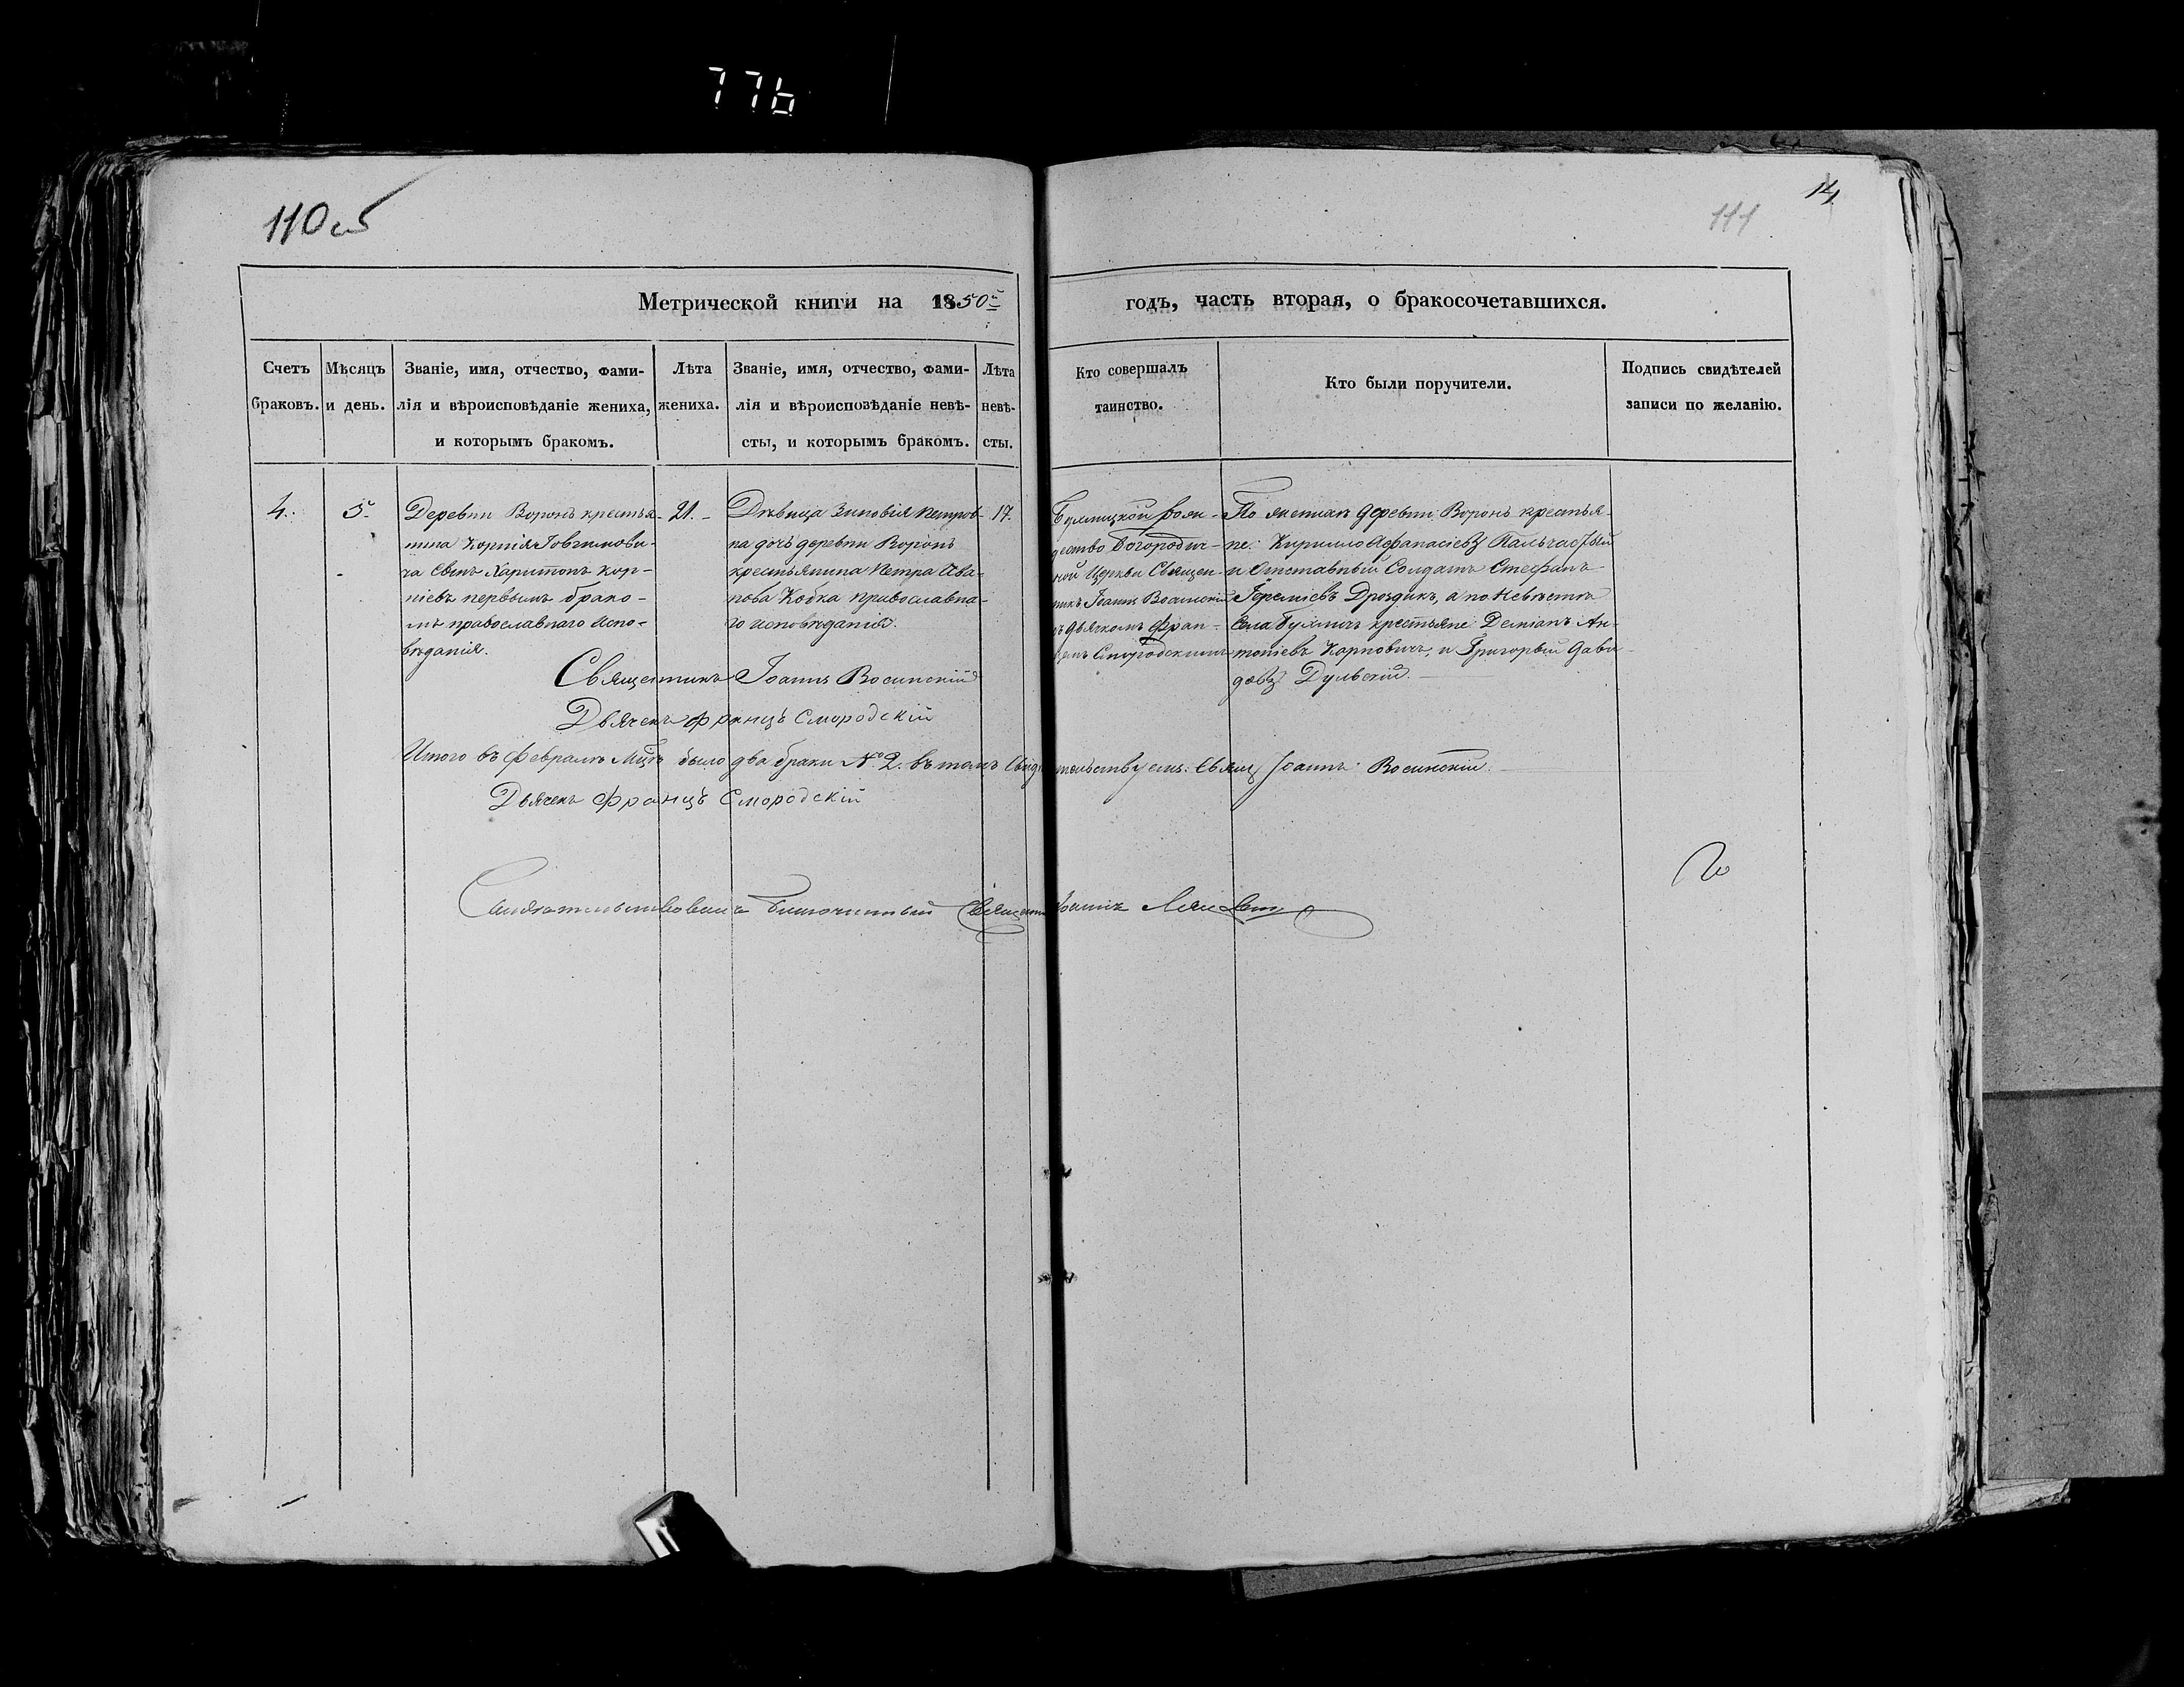 776
110 об
14
111
Метрической книги на 1850й
годъ, часть вторая, о бракосочетавшихся.
Счетъ
браковъ.
Мѣсяцъ
и день.
Званіе, имя, отчество, фами-
лія и вѣроисповѣданіе жениха,
и которымъ бракомъ.
Лѣта
жениха.
Званіе, имя, отчество, фами-
лія и вѣроисповѣданіе невѣ-
сты, и которымъ бракомъ.
Лѣта
невѣ-
сты.
Кто совершалъ
таинство.
Кто были поручители.
Подпись свидѣтелей
записи по желанію.
4.
5.
Деревни Воронъ крестья-
нина Корнія Іовхимови-
ча сынъ Харитонъ Кор-
ніевъ первымъ брако-
мъ православнаго испо-
вѣданія.
21.
Дѣвица Зиновія Петров-
на дочь деревни Воронъ
крестьянина Петра Ива-
нова Кобка православна-
го исповѣданія.
17.
Булмицкой рож-
дество Богородич-
ной Церкви Священ-
никъ Іоаннъ Восинскій
съ дьячкомъ Фран-
цемъ Смородскимъ
По женихѣ деревни Воронъ крестья-
не: Кирилло Афанасіевъ
и Отставный Солдатъ Стефанъ
Іереміевъ Дроздикъ, а по Невѣстѣ
Села Булмичъ крестьяне Деміанъ Ан-
тоніевъ Карповичъ, и Григорій Дави-
довъ Дульскій.
Священникъ Іоаннъ Восинскій
Дьячекъ Францъ Смородскій
Итого въ Февралѣ Мцѣ было два браки № 2. въ томъ Свидѣтельствуемъ: Свящ Іоаннъ Восинскій.
Дьячекъ Францъ Смородскій
Свидѣтельствовалъ Благочинный Священникъ Іоаннъ